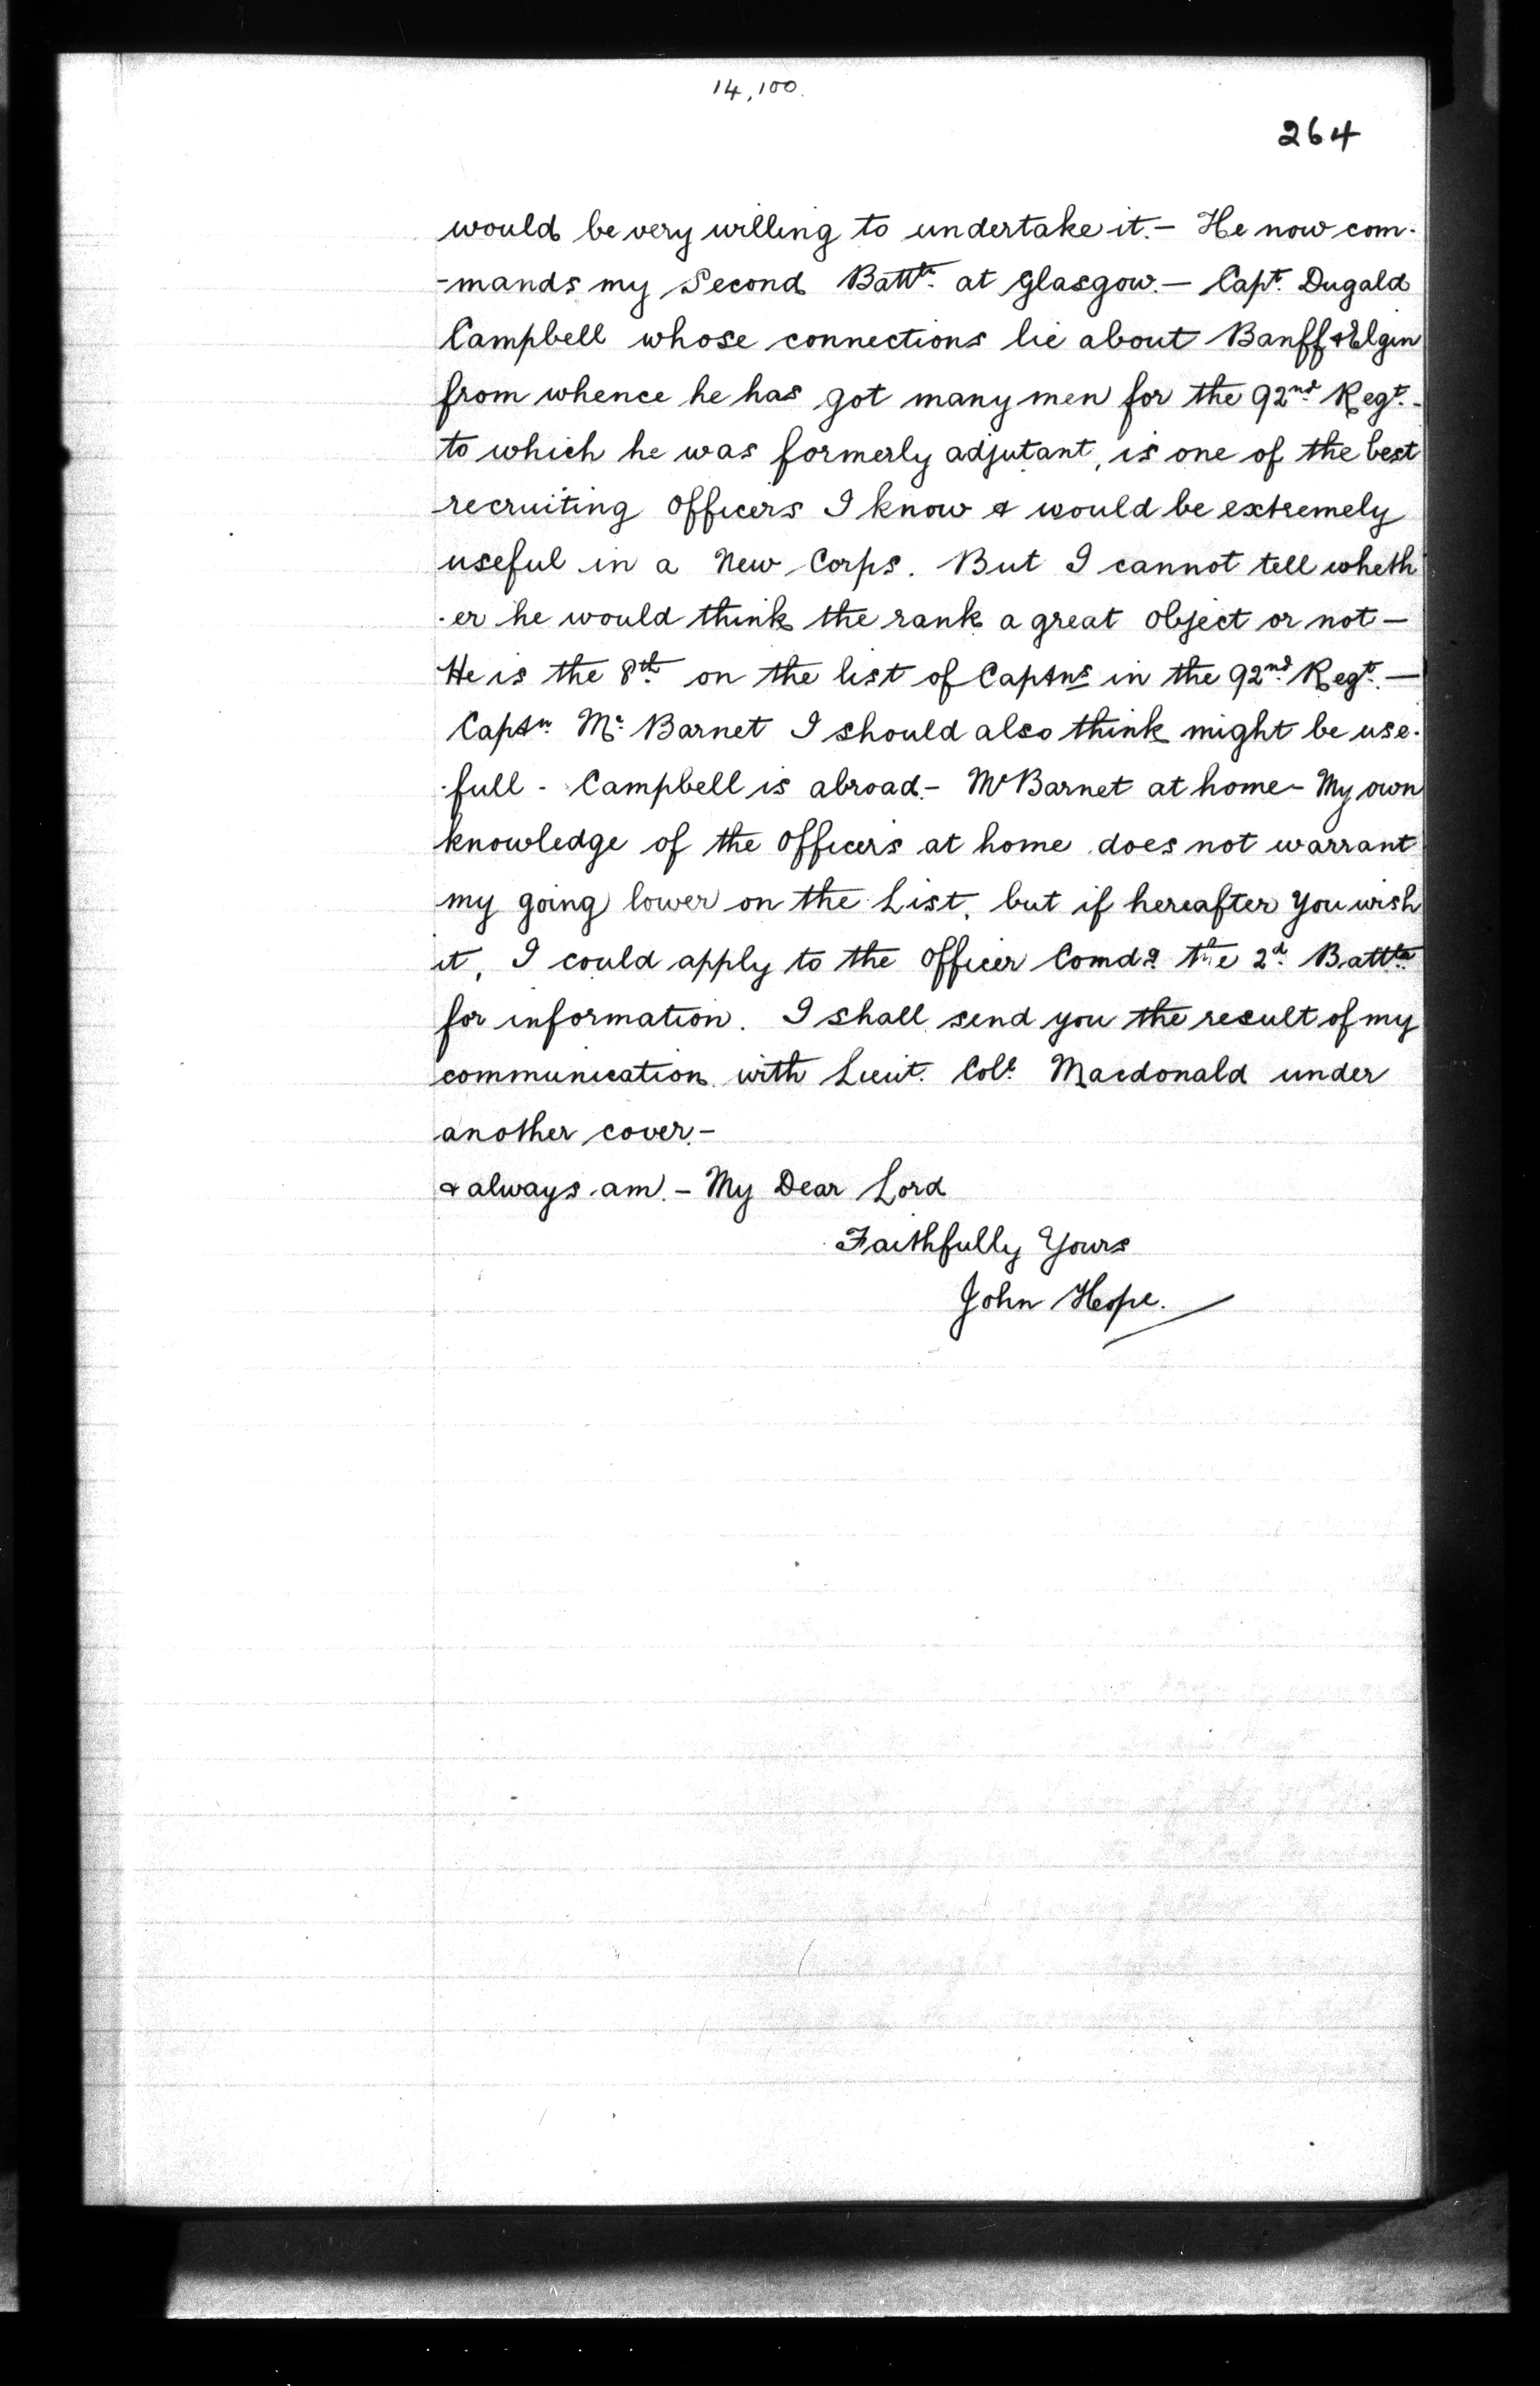 14,100.
264
would be very willing to undertake it. — He now com-
-mands my Second Battn. at Glasgow. — Capt. Dugald
Campbell whose connections lie about Banff & Elgin
from whence he has got many men for the 92nd. Regt. -
to which he was formerly adjutant, is one of the best
recruiting Officers I know & would be extremely
useful in a New Corps. But I cannot tell wheth
-er he would think the rank a great Object or not —
He is the 8th. on the list of Captns in the 92nd. Regt. —
Captn. Mc. Barnet I should also think might be use-
-full - Campbell is abroad. - McBarnet at home - My own
knowledge of the Officers at home does not warrant
my going lower on the List, but if hereafter you wish
it, I could apply to the Officer Comdg the 2d. Battn
for information. I shall send you the result of my
communication with Lieut. Coll. Macdonald under
another cover. -
& always am. - My Dear Lord
Faithfully Yours
John Hope.